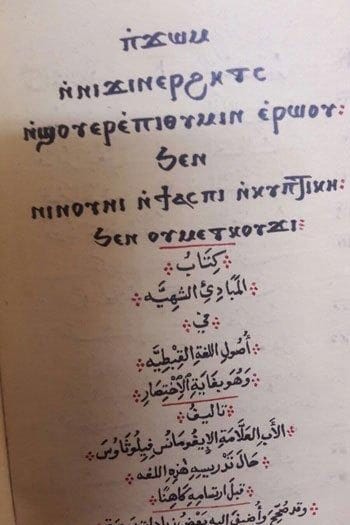 ⲡ̀ϫⲱⲙ
ⲛ̀ⲛⲓϫⲓⲛⲉⲣϩⲏⲧⲥ
ⲛ̀ϣⲟⲩⲉⲣⲉ̀ⲡⲓⲑⲩⲙⲓⲛ ⲉ̀ⲣⲱⲟⲩ:
ϧⲉⲛ
ⲛⲓⲛⲟⲩⲛⲓ ⲛ̀ϯⲁⲥⲡⲓ ⲛ̀ⲕⲩⲡⲧⲓⲕⲏ:
ϧⲉⲛ ⲟⲩⲙⲉⲧⲕⲟⲩϫⲓ:
كِتَابُ
المَبَادِئِ الشَّهِيَّه
فِي
أُصُولِ اللُّغَةِ القِبْطِيَّه
وَهُوَ بِغَايَةِ الاِخْتِصَارِ
تَالِيفُ
الأَبِ العَلَّامَةِ الإِيغُومَانُسْ فِيلُوثَاؤُسَ
حَالَ تَدْرِيسِهِ هٰذِهِ اللغه
قَبْلَ ارتِسَامِهِ كَاهِنًا
وقد صُحِّحَ وأُضِيفَ اليه بَعْضُ